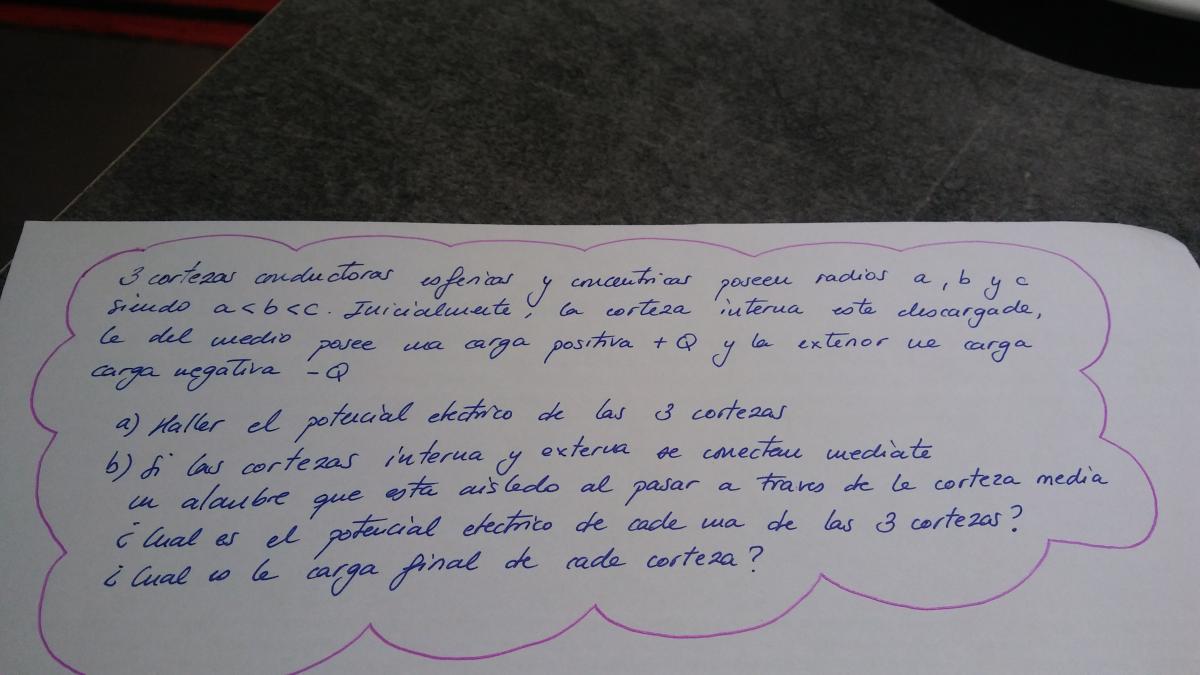 3 cortezas conductoras esfericas y concentricas poseen radios a, b y c
siendo a < b < c. Inicialmente, la corteza interna esta descargada,
la del medio posee una carga positiva + Q y la exterior una carga
carga negativa - Q
a) Haller el potencial electrico de las 3 cortezas
b) Si las cortezas interna y externa se conectan mediate
un alambre que esta aislado al pasar a traves de la corteza media
¿Cual es el potencial electrico de cada una de las 3 cortezas?
¿Cual es la carga final de cada corteza?